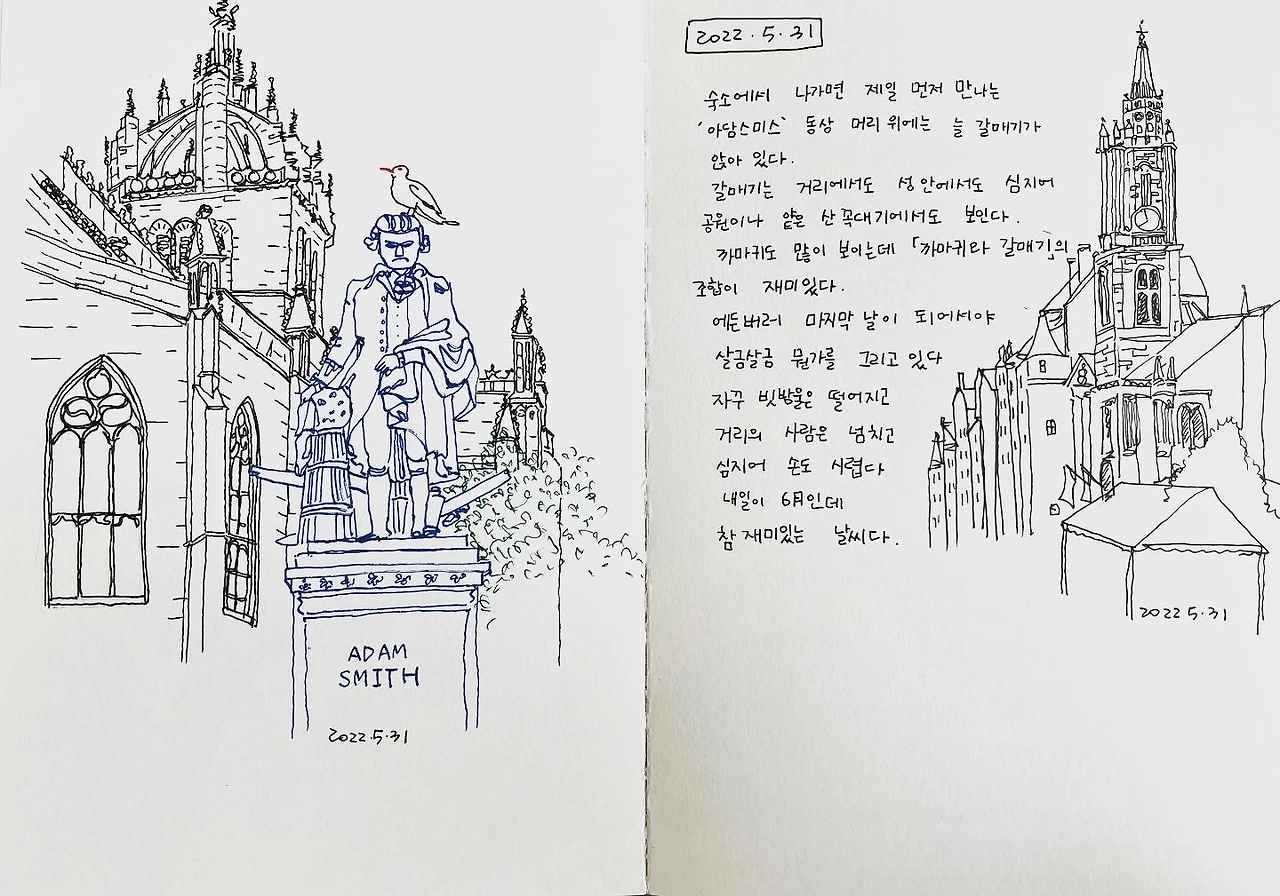 ADAM
SMITH
2022.5.31
2022.5.31
숙소에서 나가면 제일 먼저 만나는
'아담스미스' 동상 머리 위에는 늘 갈매기가
앉아 있다.
갈매기는 거리에서도 성 안에서도 심지어
공원이나 얕은 산꼭대기에서도 보인다.
까마귀도 많이 보이는데 「까마귀와 갈매기」의
조합이 재미있다.
에든버러 마지막 날이 되어서야
살금살금 뭔가를 그리고 있다
자꾸 빗방울은 떨어지고
거리의 사람은 넘치고
심지어 손도 시렵다
내일이 6月인데
참 재미있는 날씨다.
2022 5.31